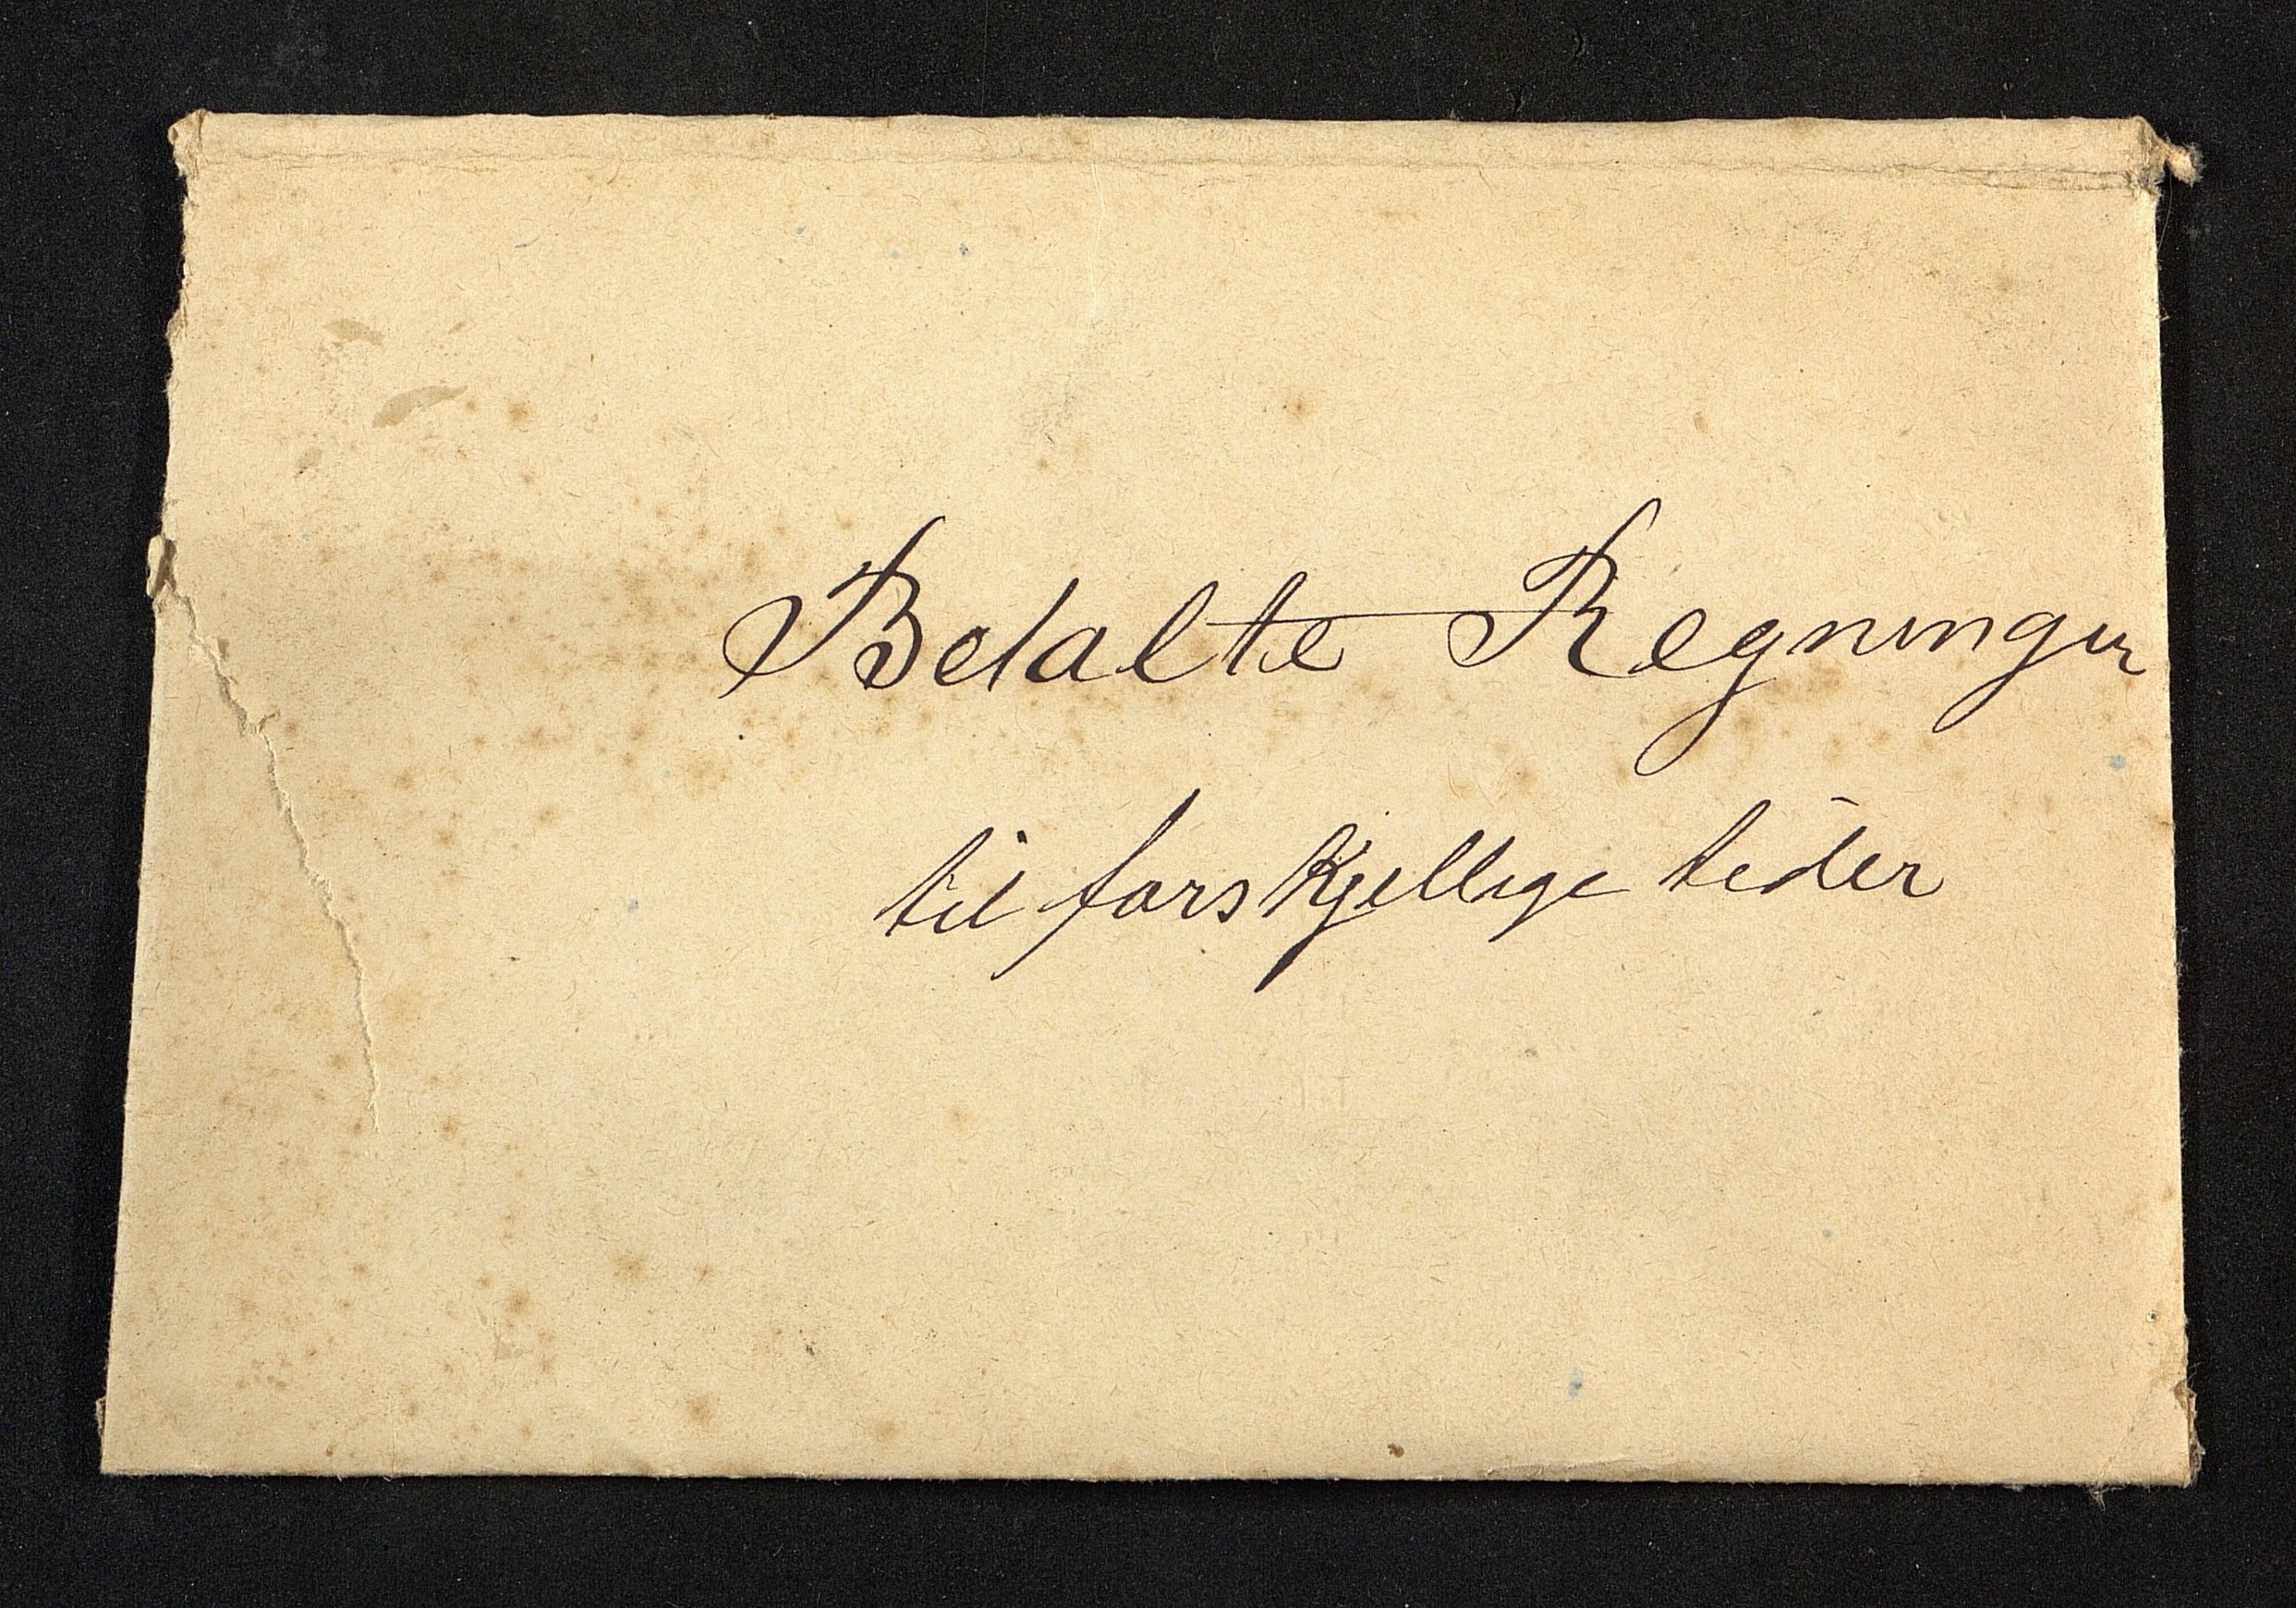 Betalte Regninger
til forskjellige tider